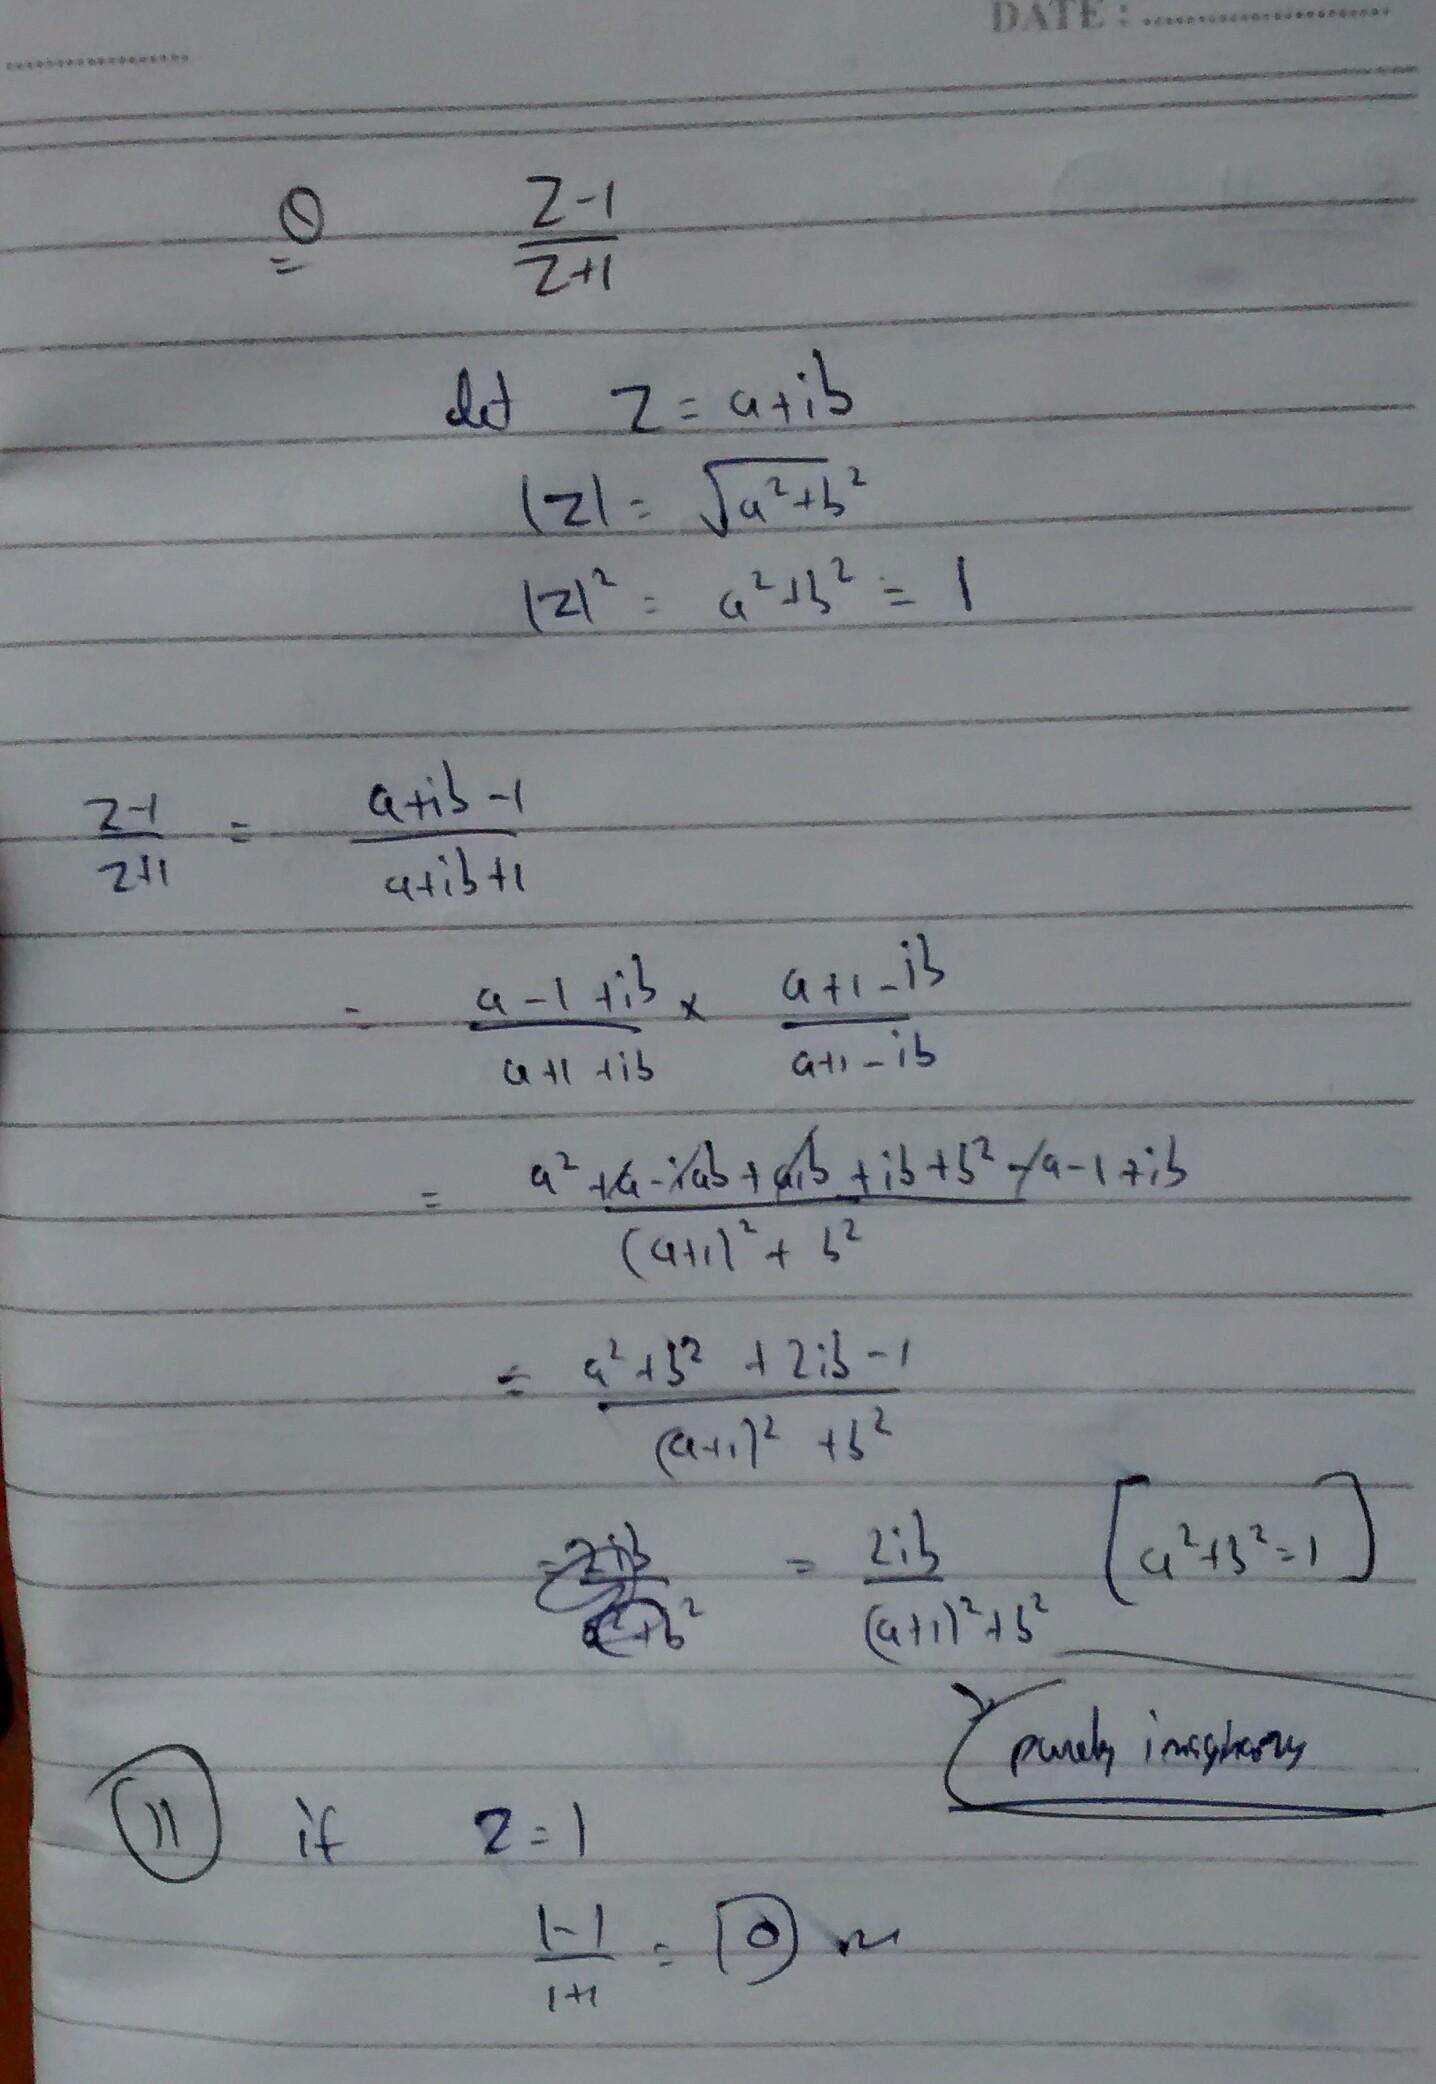 DATE : ........................
Q z-1/z+1
let z = a+ib
|z| = √a²+b²
|z|² = a²+b² = 1
z-1/z+1 = a+ib-1/a+ib+1
= a-1+ib/a+1+ib × a+1-ib/a+1-ib
= a²+a-iab+aib+ib+b²-a-1+ib/(a+1)²+b²
= a²+b²+2ib-1/(a+1)²+b²
= 2ib/(a+1)²+b² [a²+b²=1]
purely imaginary
(11) if z=1
1-1/1+1 = 0